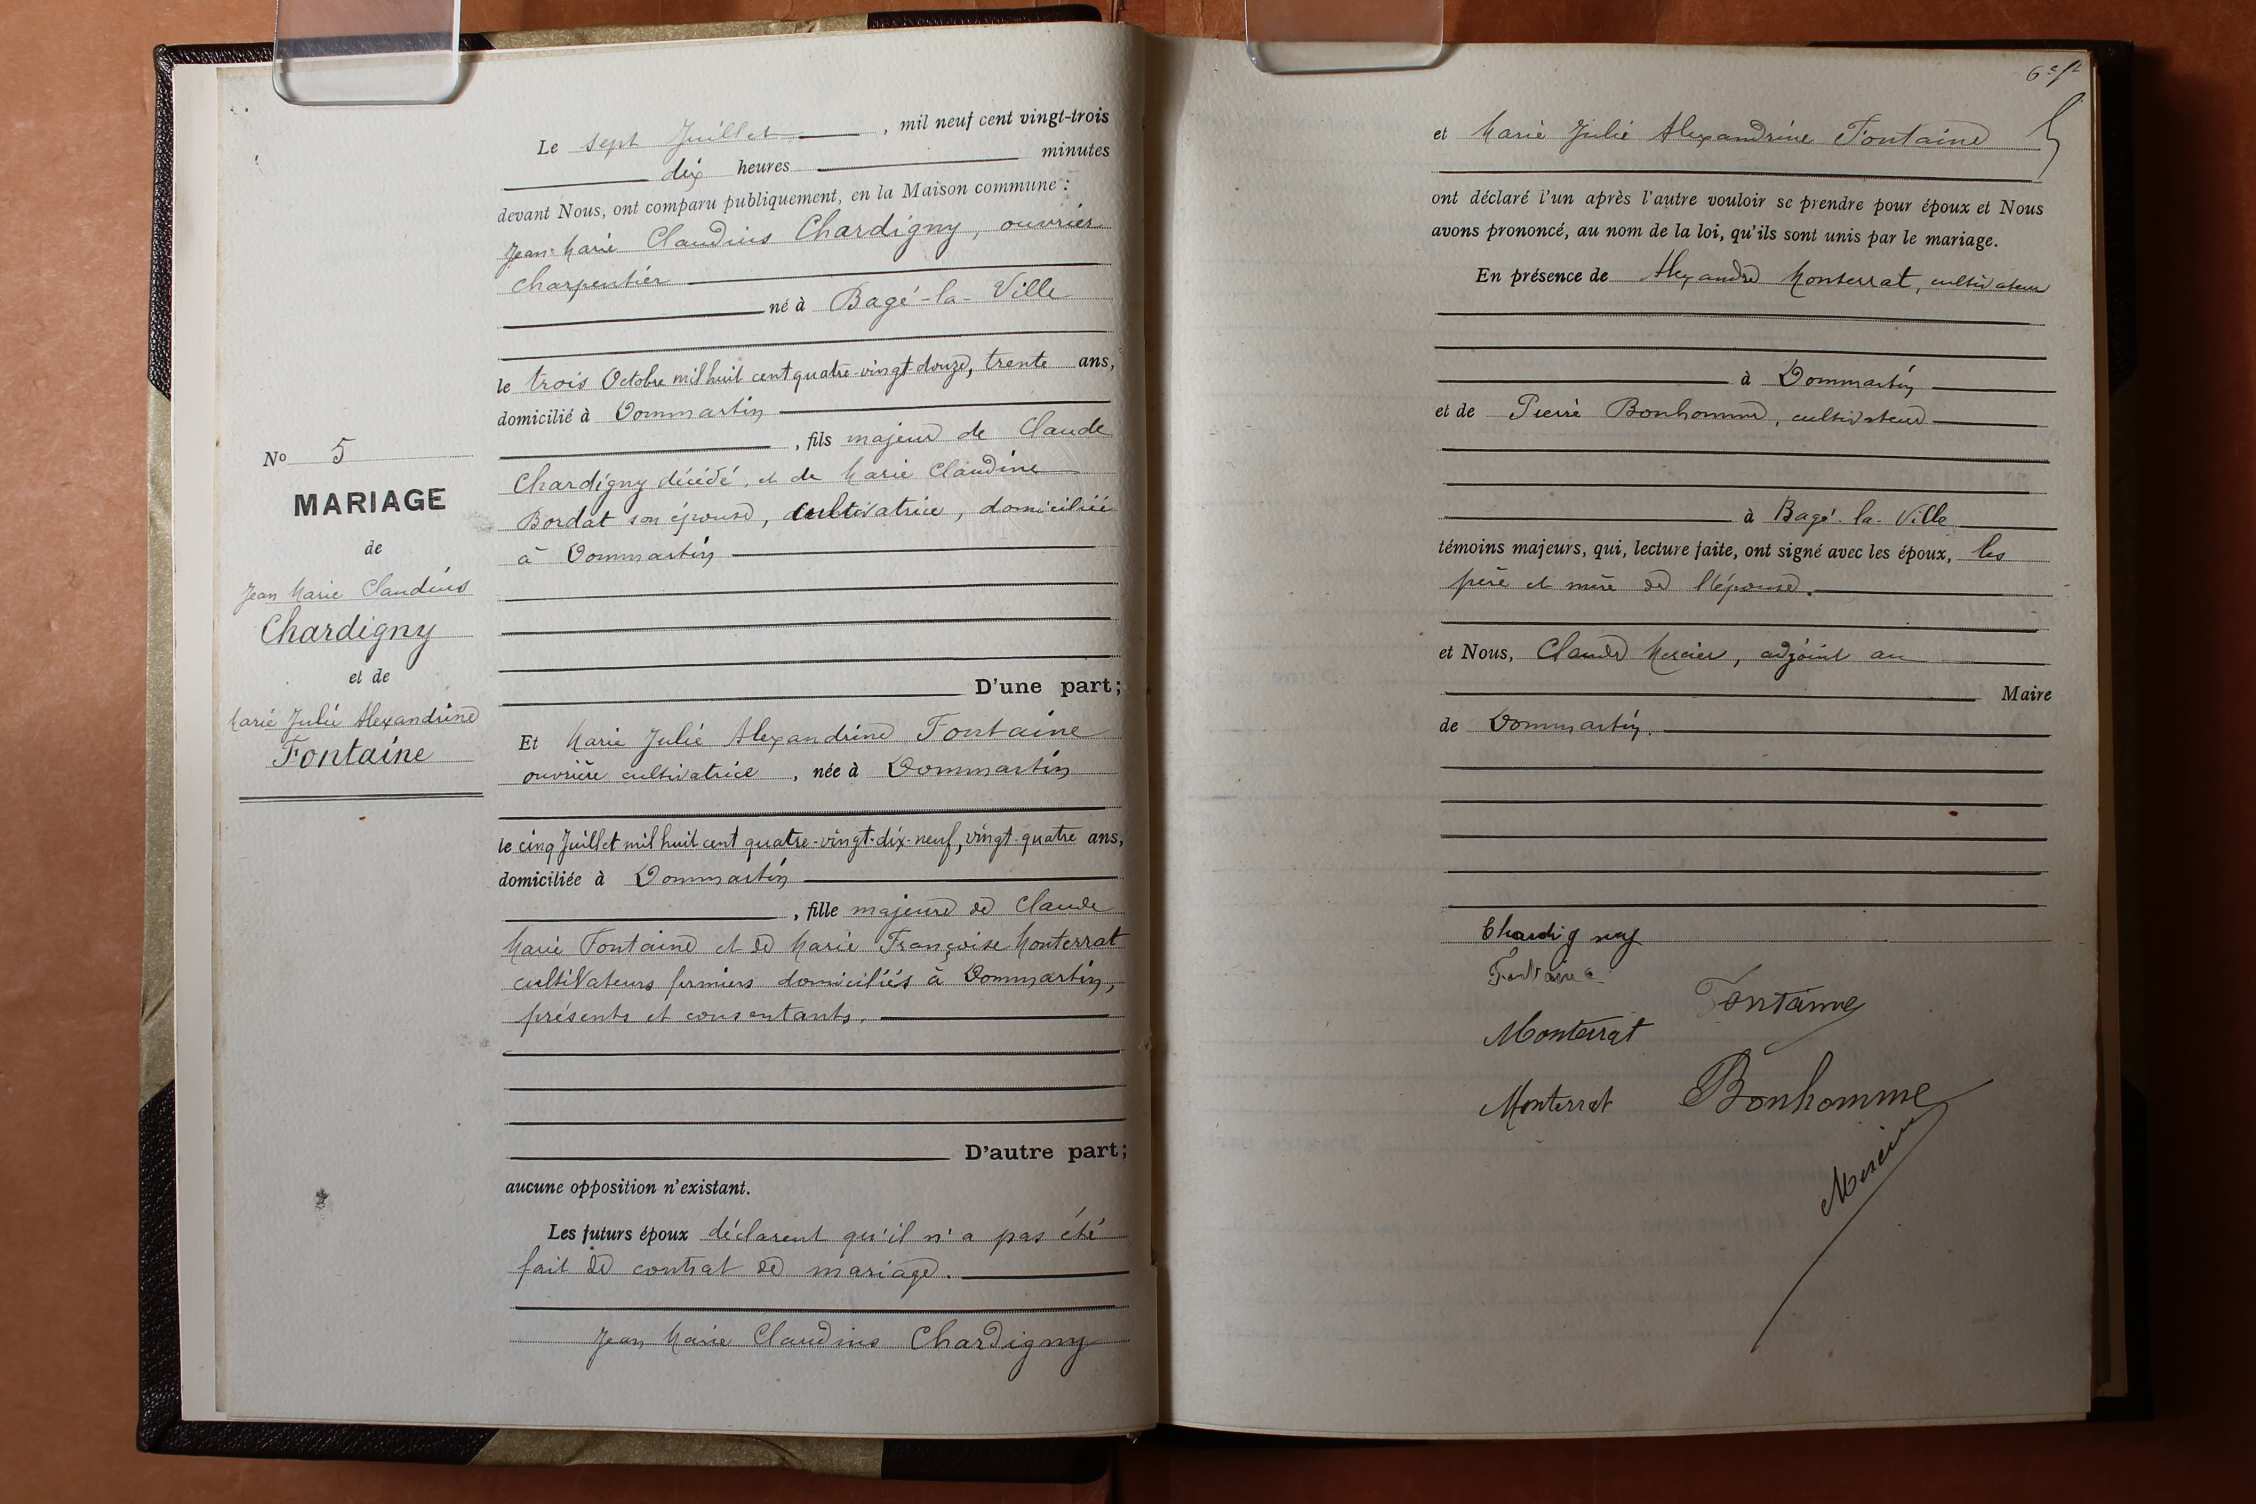 Le sept Juillet, mil neuf cent vingt-trois
dix heures minutes
devant Nous, ont comparu publiquement, en la Maison commune :
Jean-Marie Claudius Chardigny, ouvrier
charpentier
né à Bagé-la-Ville
le trois Octobre mil huit cent quatre-vingt-douze, trente ans,
domicilié à Dommartin
, fils majeur de Claude
Chardigny décédé, et de Marie Claudine
Bordat son épouse, cultivatrice, domiciliée
à Dommartin
D'une part;
Et Marie Julie Alexandrine Fontaine
ouvrière cultivatrice, née à Dommartin
le cinq Juillet mil huit cent quatre-vingt-dix-neuf, vingt-quatre ans,
domiciliée à Dommartin
, fille majeure de Claude
Marie Fontaine et de Marie Françoise Monterrat
cultivateurs fermiers domiciliés à Dommartin,
présents et consentants.
D'autre part;
aucune opposition n'existant.
Les futurs époux déclarent qu'il n'a pas été
fait de contrat de mariage.
Jean Marie Claudius Chardigny
No 5
MARIAGE
de
Jean Marie Claudius
Chardigny
et de
Marie Julie Alexandrine
Fontaine
et Marie Julie Alexandrine Fontaine
ont déclaré l'un après l'autre vouloir se prendre pour époux et Nous
avons prononcé, au nom de la loi, qu'ils sont unis par le mariage.
En présence de Alexandre Monterrat, cultivateur
à Dommartin
et de Pierre Bonhomme, cultivateur
à Bagé-la-Ville
témoins majeurs, qui, lecture faite, ont signé avec les époux, les
père et mère de l'épouse.
et Nous, Claude Mercier, adjoint au
Maire
de Dommartin.
Chardigny
Fontaine
Fontaine
Monterrat
Monterrat Bonhomme
Mercier